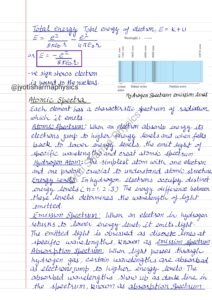 Total Energy Total energy of electron, E = K + U
E = e² - e²
8πε₀r 4πε₀r
or E = - e²
8πε₀r
-ve sign shows electron
is bound to the nucleus.
Hydrogen Spectrum emission lines
@jyotisharmaphysics
Atomic Spectra
Each element has a characteristic spectrum of radiation
which it emits.
Atomic Spectrum: When an electron absorbs energy its
electrons jump to higher energy levels and when falls
back to lower energy levels the emit light of
specific wavelengths and creat atomic spectrum.
Hydrogen Atom: The simplest atom with one electron
and one proton, crucial to understand atomic structure
Energy Levels: In hydrogen electrons occupy distinct
energy levels (n=1, 2, 3). The energy difference between
these levels determines the wavelength of light
emitted.
Emission Spectrum: When an electron in hydrogen
returns to lower energy level it emits light.
The emitted light is observed as discrete lines at
specific wavelengths, known as emission spectrum
Absorption Spectrum: When light passes through
hydrogen gas, certain wavelengths are absorbed
as electrons jump to higher energy levels. The
absorbed wavelengths show up as dark line in
the spectrum, known as absorption spectrum.